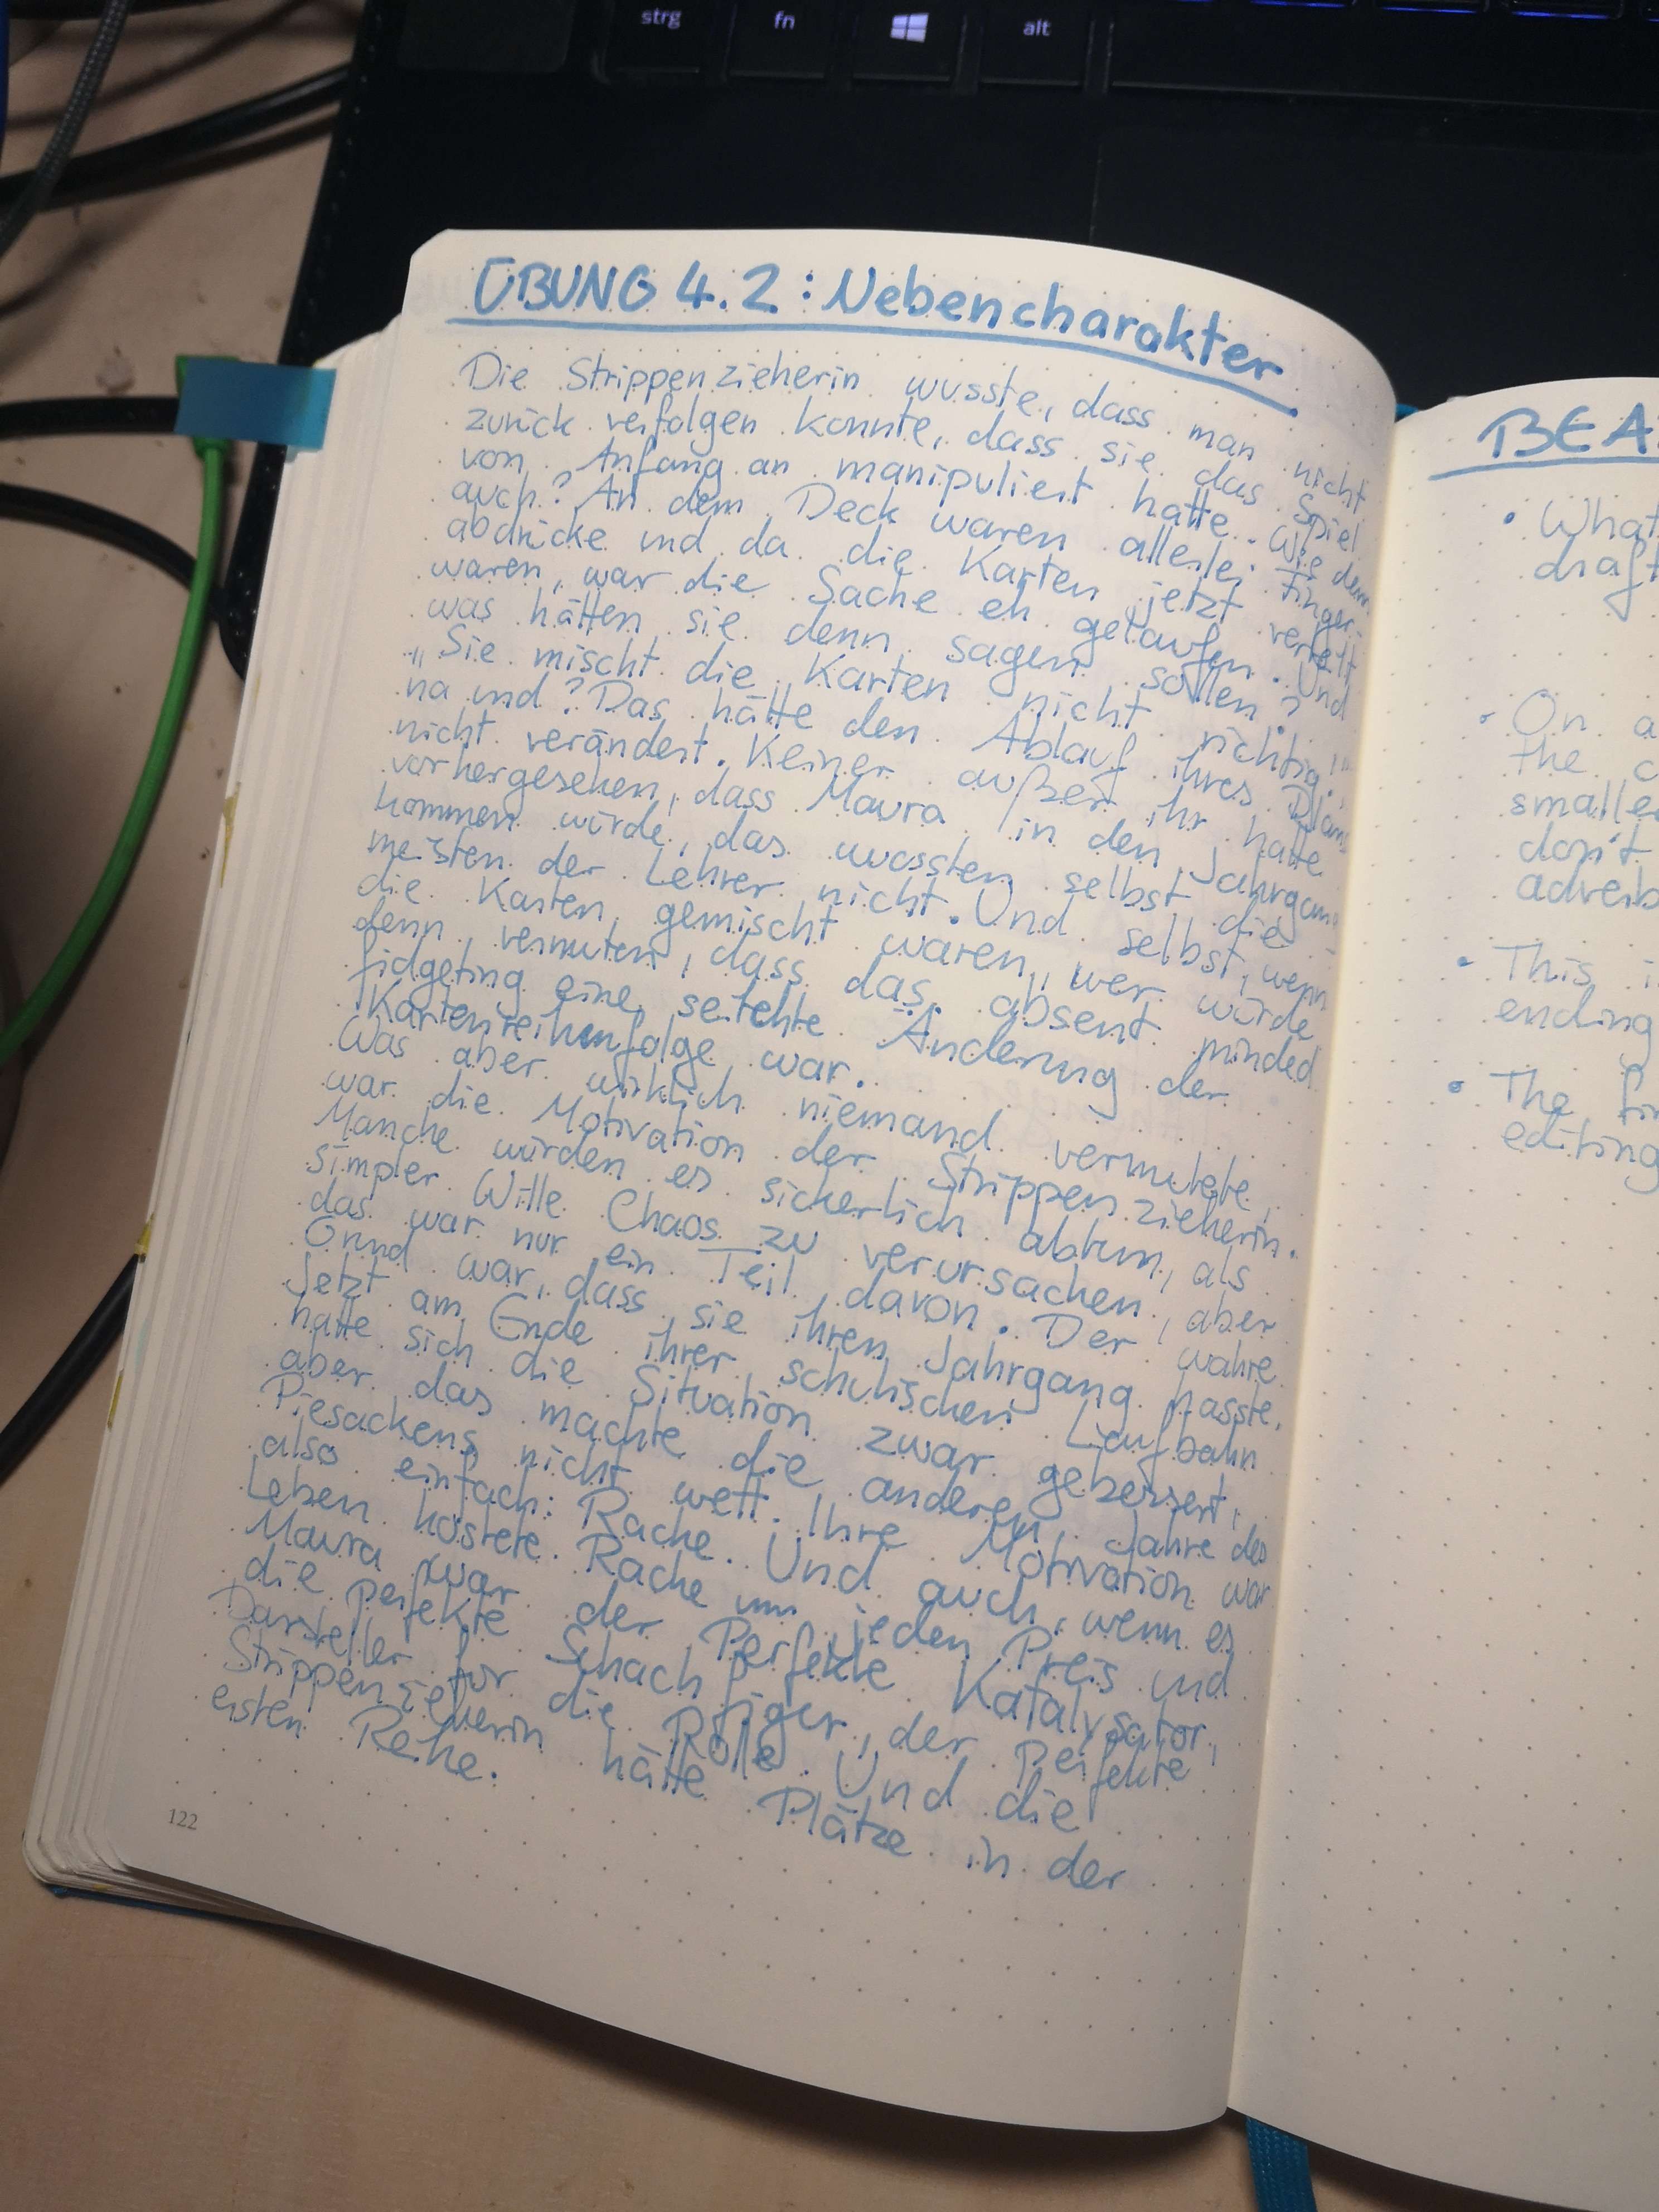 strg fn alt
ÜBUNG 4.2: Nebencharakter
Die Strippenzieherin wusste, dass man nicht
zurück verfolgen konnte, dass sie das Spiel
von Anfang an manipuliert hatte. Wie denn
auch? An dem Deck waren allerlei Finger-
abdrücke und da die Karten jetzt verteilt
waren, war die Sache eh gelaufen. Und
was hätten sie denn sagen sollen?
„Sie mischt die Karten nicht richtig!"
na und? Das hätte den Ablauf ihres Plans
nicht verändert. Keiner außer ihr hatte
vorhergesehen, dass Maura in den Jahrgang
kommen würde, das wussten selbst die
meisten der Lehrer nicht. Und selbst, wenn
die Karten gemischt waren, wer würde
denn vermuten, dass das absent minded
fidgeting eine seitehte Änderung der
Kartenreihenfolge war.
Was aber wirklich niemand vermutete,
war die Motivation der Strippenzieherin.
Manche würden es sicherlich abtun, als
simpler Wille Chaos zu verursachen, aber
das war nur ein Teil davon. Der wahre
Grund war, dass sie ihren Jahrgang hasste.
Jetzt am Ende ihrer schulischen Laufbahn
hatte sich die Situation zwar gebessert,
aber das machte die anderen Jahre des
Piesackens nicht wett. Ihre Motivation war
also einfach: Rache. Und auch, wenn es
Leben kostete. Rache um jeden Preis und
Maura war der Perfekte Katalysator,
die perfekte Schachfiger, der perfekte
Darsteller für die Rolle. Und die
Strippenzieherin hätte Plätze in der
ersten Reihe.
122
BEA
• What
draft
• On a
the c
smalle
don't
adverb
• This i
ending
• The fin
editing